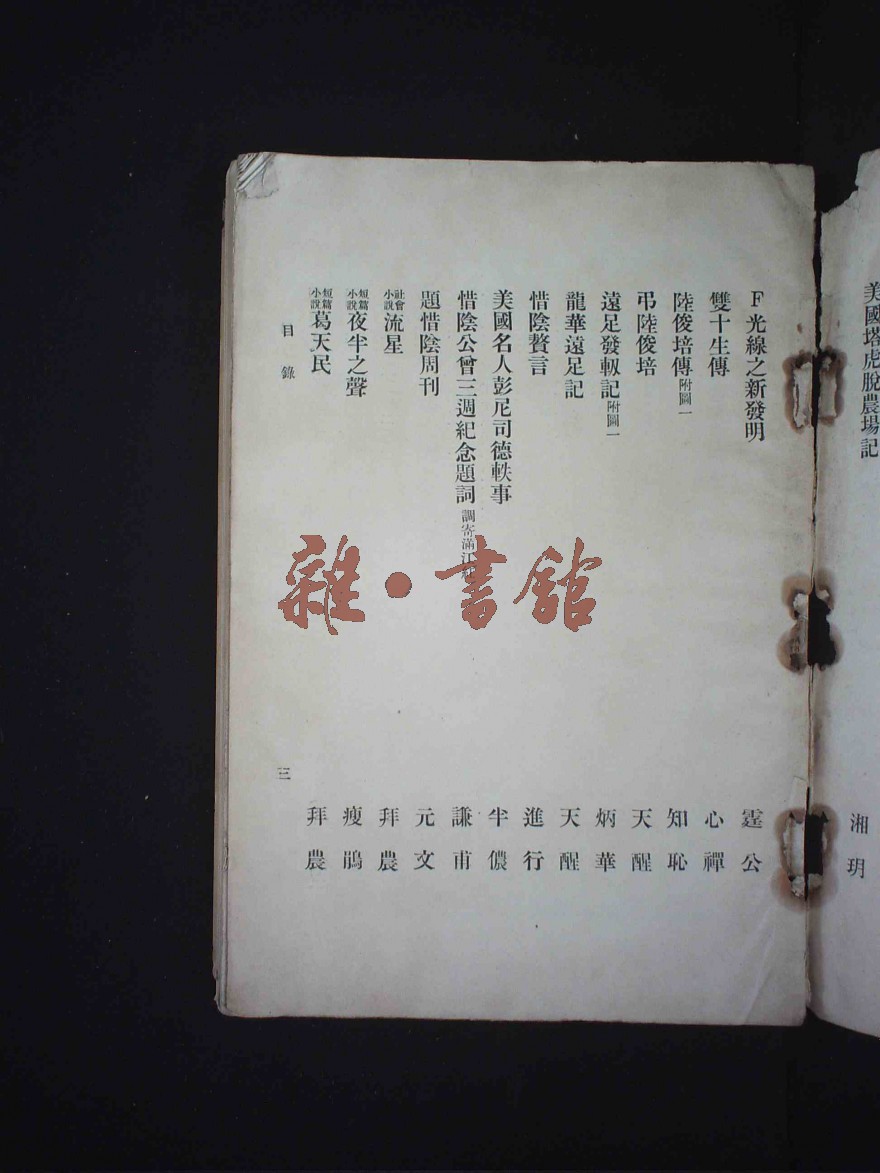 美國塔虎脫農場記 湘玥
F光線之新發明 霆公
雙十生傳 心禪
陸俊培傳附圖一 知恥
弔陸俊培 天醒
遠足發軔記附圖一 炳華
龍華遠足記 天醒
惜陰贅言 進行
美國名人彭尼司德軼事 半儂
惜陰公會三週紀念題詞 調寄滿江紅 謙甫
題惜陰周刊 元文
社會小說 流星 拜農
短篇小說 夜半之聲 瘦鵑
短篇小說 葛天民 拜農
目錄 三
雜·書館